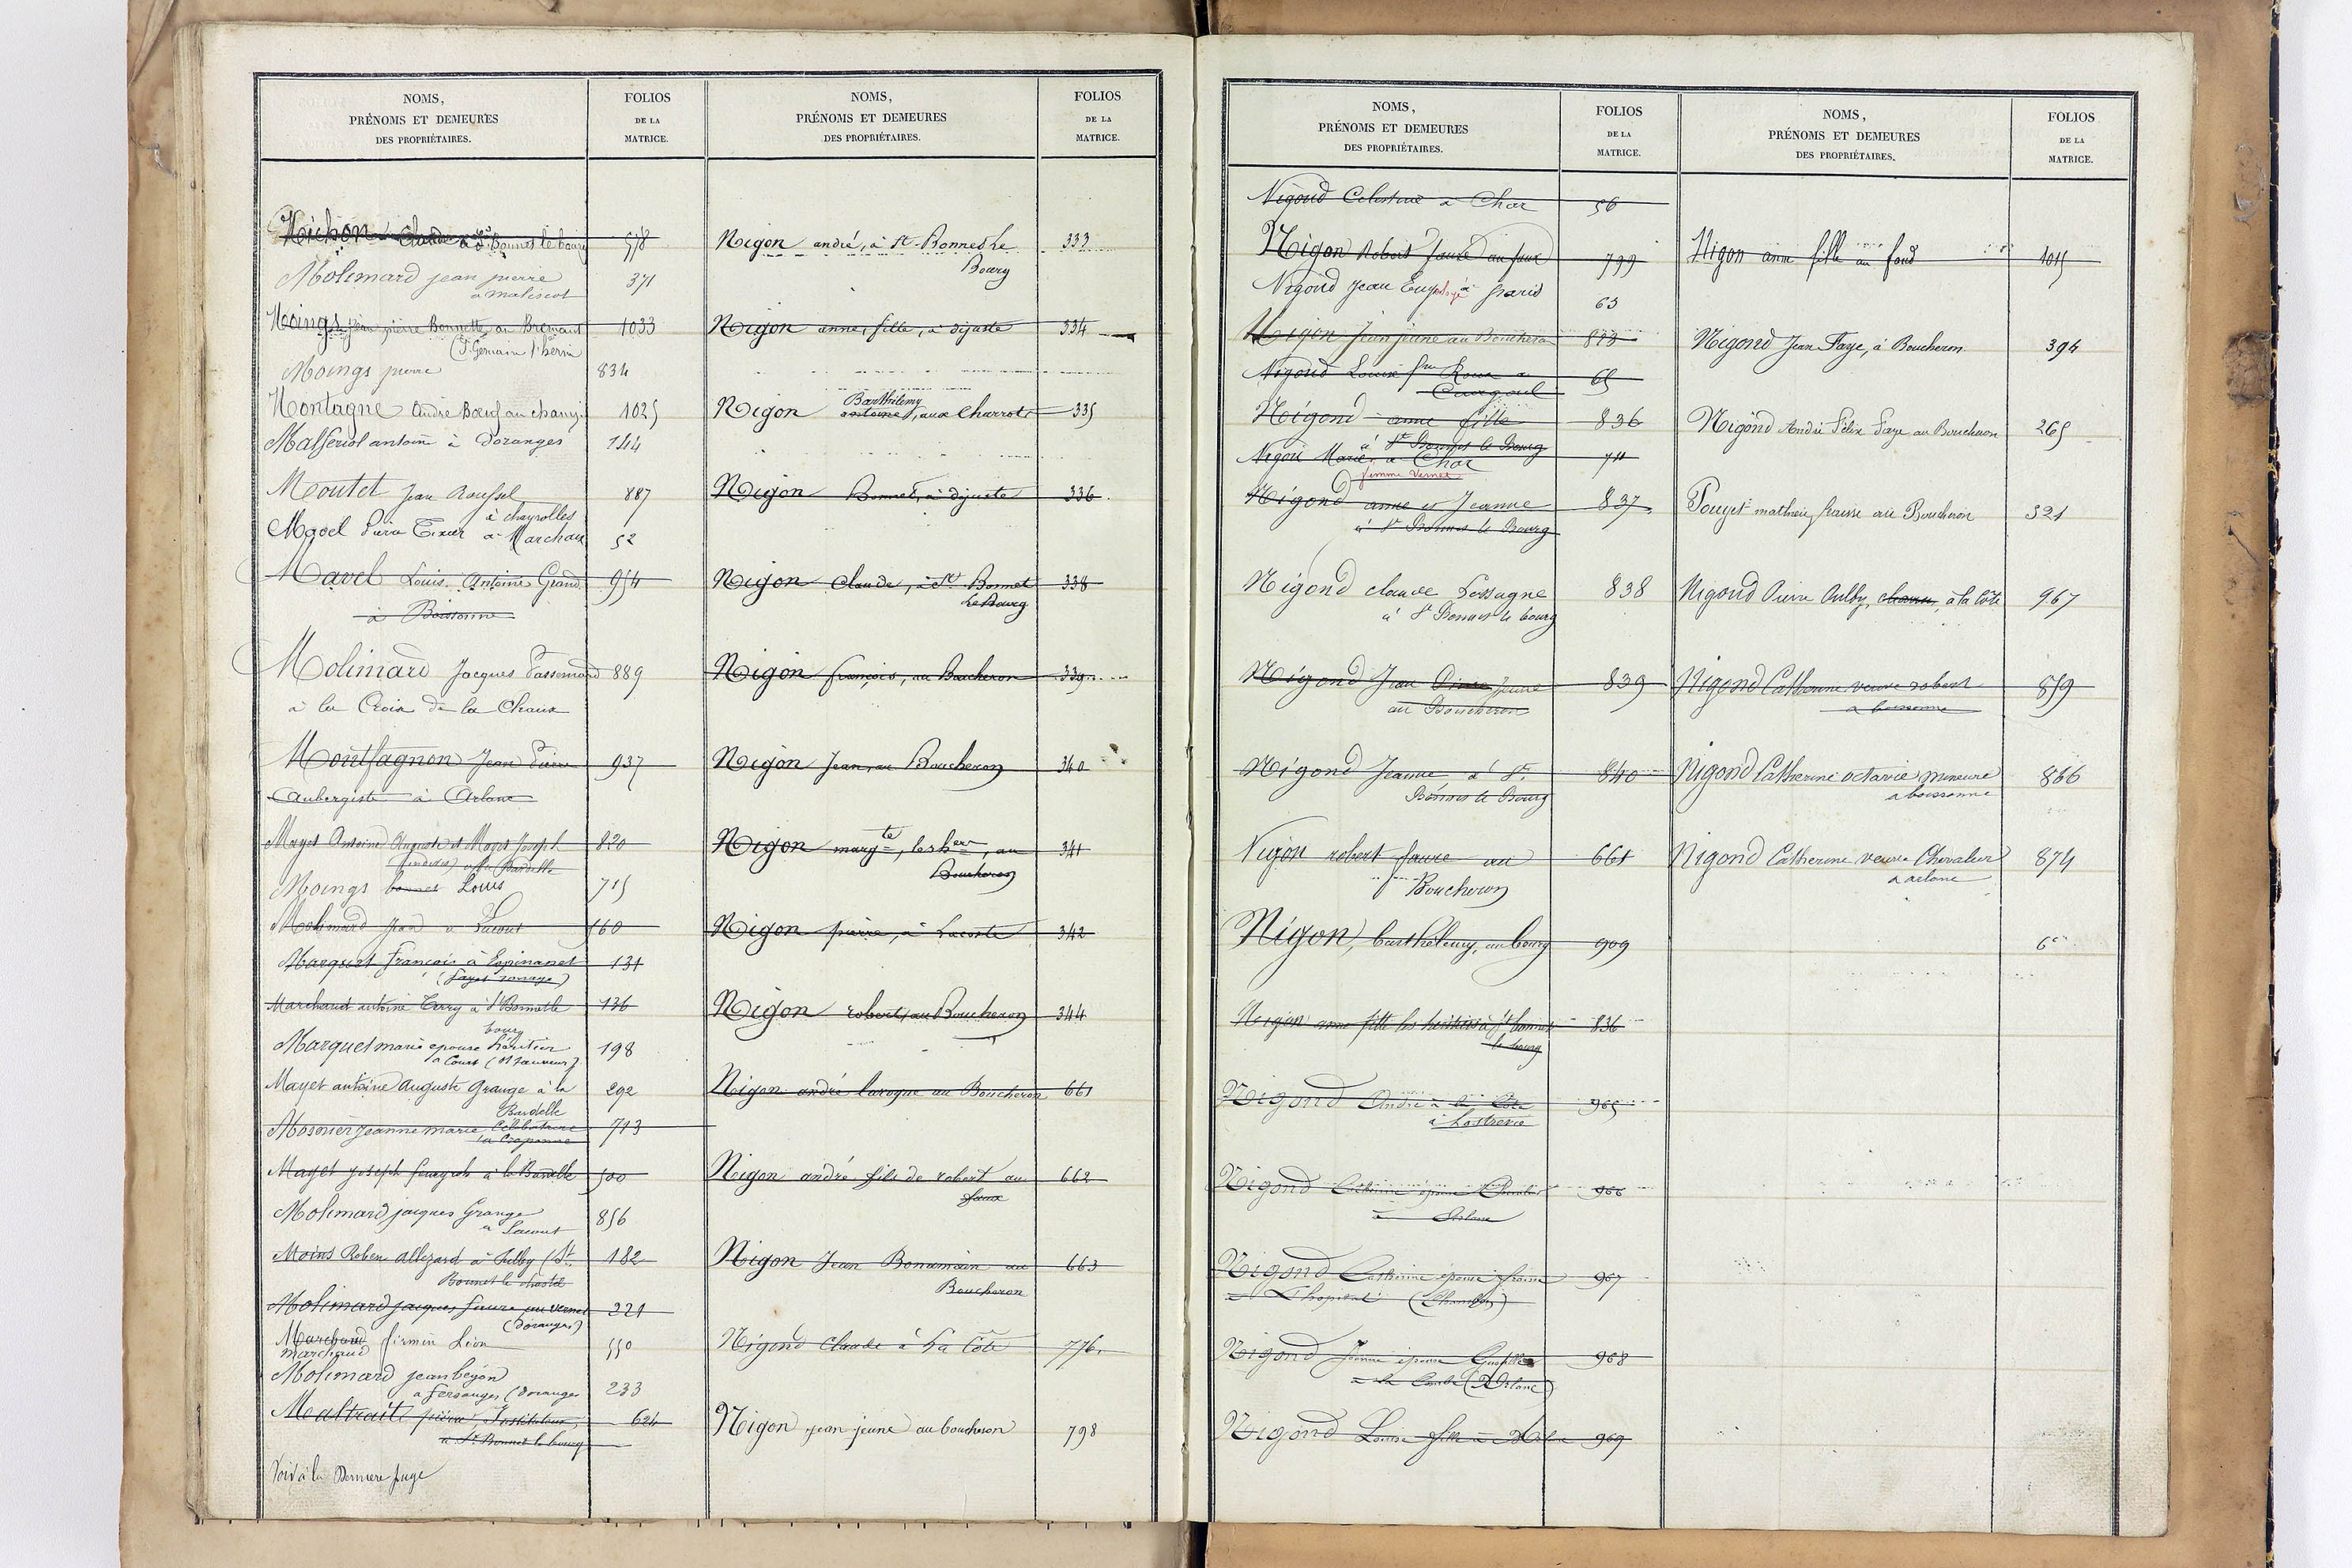 NOMS,
PRÉNOMS ET DEMEURES
DES PROPRIÉTAIRES.
FOLIOS
DE LA
MATRICE.
Michon Claude à St Bonnet le bourg 578
Molimard jean pierre 371
à maliscot
Moings jean pierre Bonnette au Bremant 1033
(St Germain l'herm
Moings pierre 834
Montagne André Bœuf au champ 1025
Malferiol antoine à doranges 144
Moutet Jean Roussel 887
à cheyrolles
Mavel Pierre Tixier à Marchaux 52
Mavel Louis Antoine Grand 954
à Boissonne
Molimard Jacques Passemard 889
à la Croix de la Chaux
Montfagnon Jean Pierre 937
Aubergiste à Arlanc
Mayet Antoine Auguste et Mayet Joseph 820
(indivis) à la Bardelle
Moings bonnet Louis 715
Molimard Jean à Lacout 160
Marquet François à Espinanet 131
Marchaud antoine Terry à St Bonnet le 136
bourg
Marquet marie epouse héritier 198
à Court (St Sauveur)
Mayet antoine Auguste Grange à la 292
Bardelle
Mosnier jeanne marie Célibataire 713
à Craponne
Mayet joseph à la Bardelle 500
Molimard jacques Grange 856
à Lacout
Moins Robert allezard à Fulby (St 182
Bonnet le chastel
Molimard jacques faure au vernet 221
(doranges)
Marchaud firmin Léon 550
marchaud
Molimard jean béyon 233
à fersanges (doranges
Maltrait pierre, Instituteur, 624
à St Bonnet le bourg
Voir à la Dernière page
NOMS,
PRÉNOMS ET DEMEURES
DES PROPRIÉTAIRES.
FOLIOS
DE LA
MATRICE.
Nigon andré, à St-Bonnet le 333
Bourg
Nigon anne, fille, à dijuste 334
Barthélemy
Nigon antoine, aux Charrots 335
Nigon Bonnet, à dijuste 336
Nigon Claude, à St Bonnet 338
Le Bourg
Nigon françois, au Boucheron 339
Nigon Jean, au Boucheron 340
Nigon margte, les hers, au 341
Boucheron
Nigon pierre, à Lacoste 342
Nigon robert, au Boucheron 344
Nigon andré laroque au Boucheron 661
Nigon andré fils de robert au 662
faux
Nigon Jean Bonamain au 663
Boucheron
Nigond Claude à La Côte 776
Nigon jean jeune au boucheron 798
NOMS,
PRÉNOMS ET DEMEURES
DES PROPRIÉTAIRES.
FOLIOS
DE LA
MATRICE.
Nigoud Celestine à Char 56
Nigon Robert faure au faux 799
Nigoud Jean Employé à paris 63
Nigon Jean jeune au Boucheron 823
Nigoud Louise fme Roux à 65
Nigond anne fille 836
à St Bonnet le Bourg
Nigou Marie, à Char 74
femme Vernet
Nigond anne et Jeanne 837
à St Bonnet le Bourg
Nigond claude Lossagne 838
à St Bonnet le bourg
Nigond Jean Pierre Jeune 839
au Boucheron
Nigond Jeanne à St 840
Bonnet le Bourg
Nigon robert faure au 661
Boucheron
Nigon, barthélemy, au bourg 909
Nigon anne fille les héritiers à St bonnet 836
le bourg
Nigond André à la Côte 965
Nigond Catherine épouse Chevalier 966
à Arlanc
Nigond Catherine épouse 967
à L'hopital (Chambon)
Nigond Jeanne épouse 968
à la Combe (Arlanc)
Nigond Louise fille à 969
NOMS,
PRÉNOMS ET DEMEURES
DES PROPRIÉTAIRES.
FOLIOS
DE LA
MATRICE.
Nigon anne fille au faud 1015
Nigond Jean Faye, à Boucheron 394
Nigond André Félix Faye au Boucheron 265
Pouyet mathieu fraisse au Boucheron 321
Nigoud Pierre Aulby, à la Côte 967
Nigond Catherine veuve robert 859
à boissonne
Nigond Catherine octavie mineure 866
à boissonne
Nigond Catherine veuve Chevalier 874
à arlanc